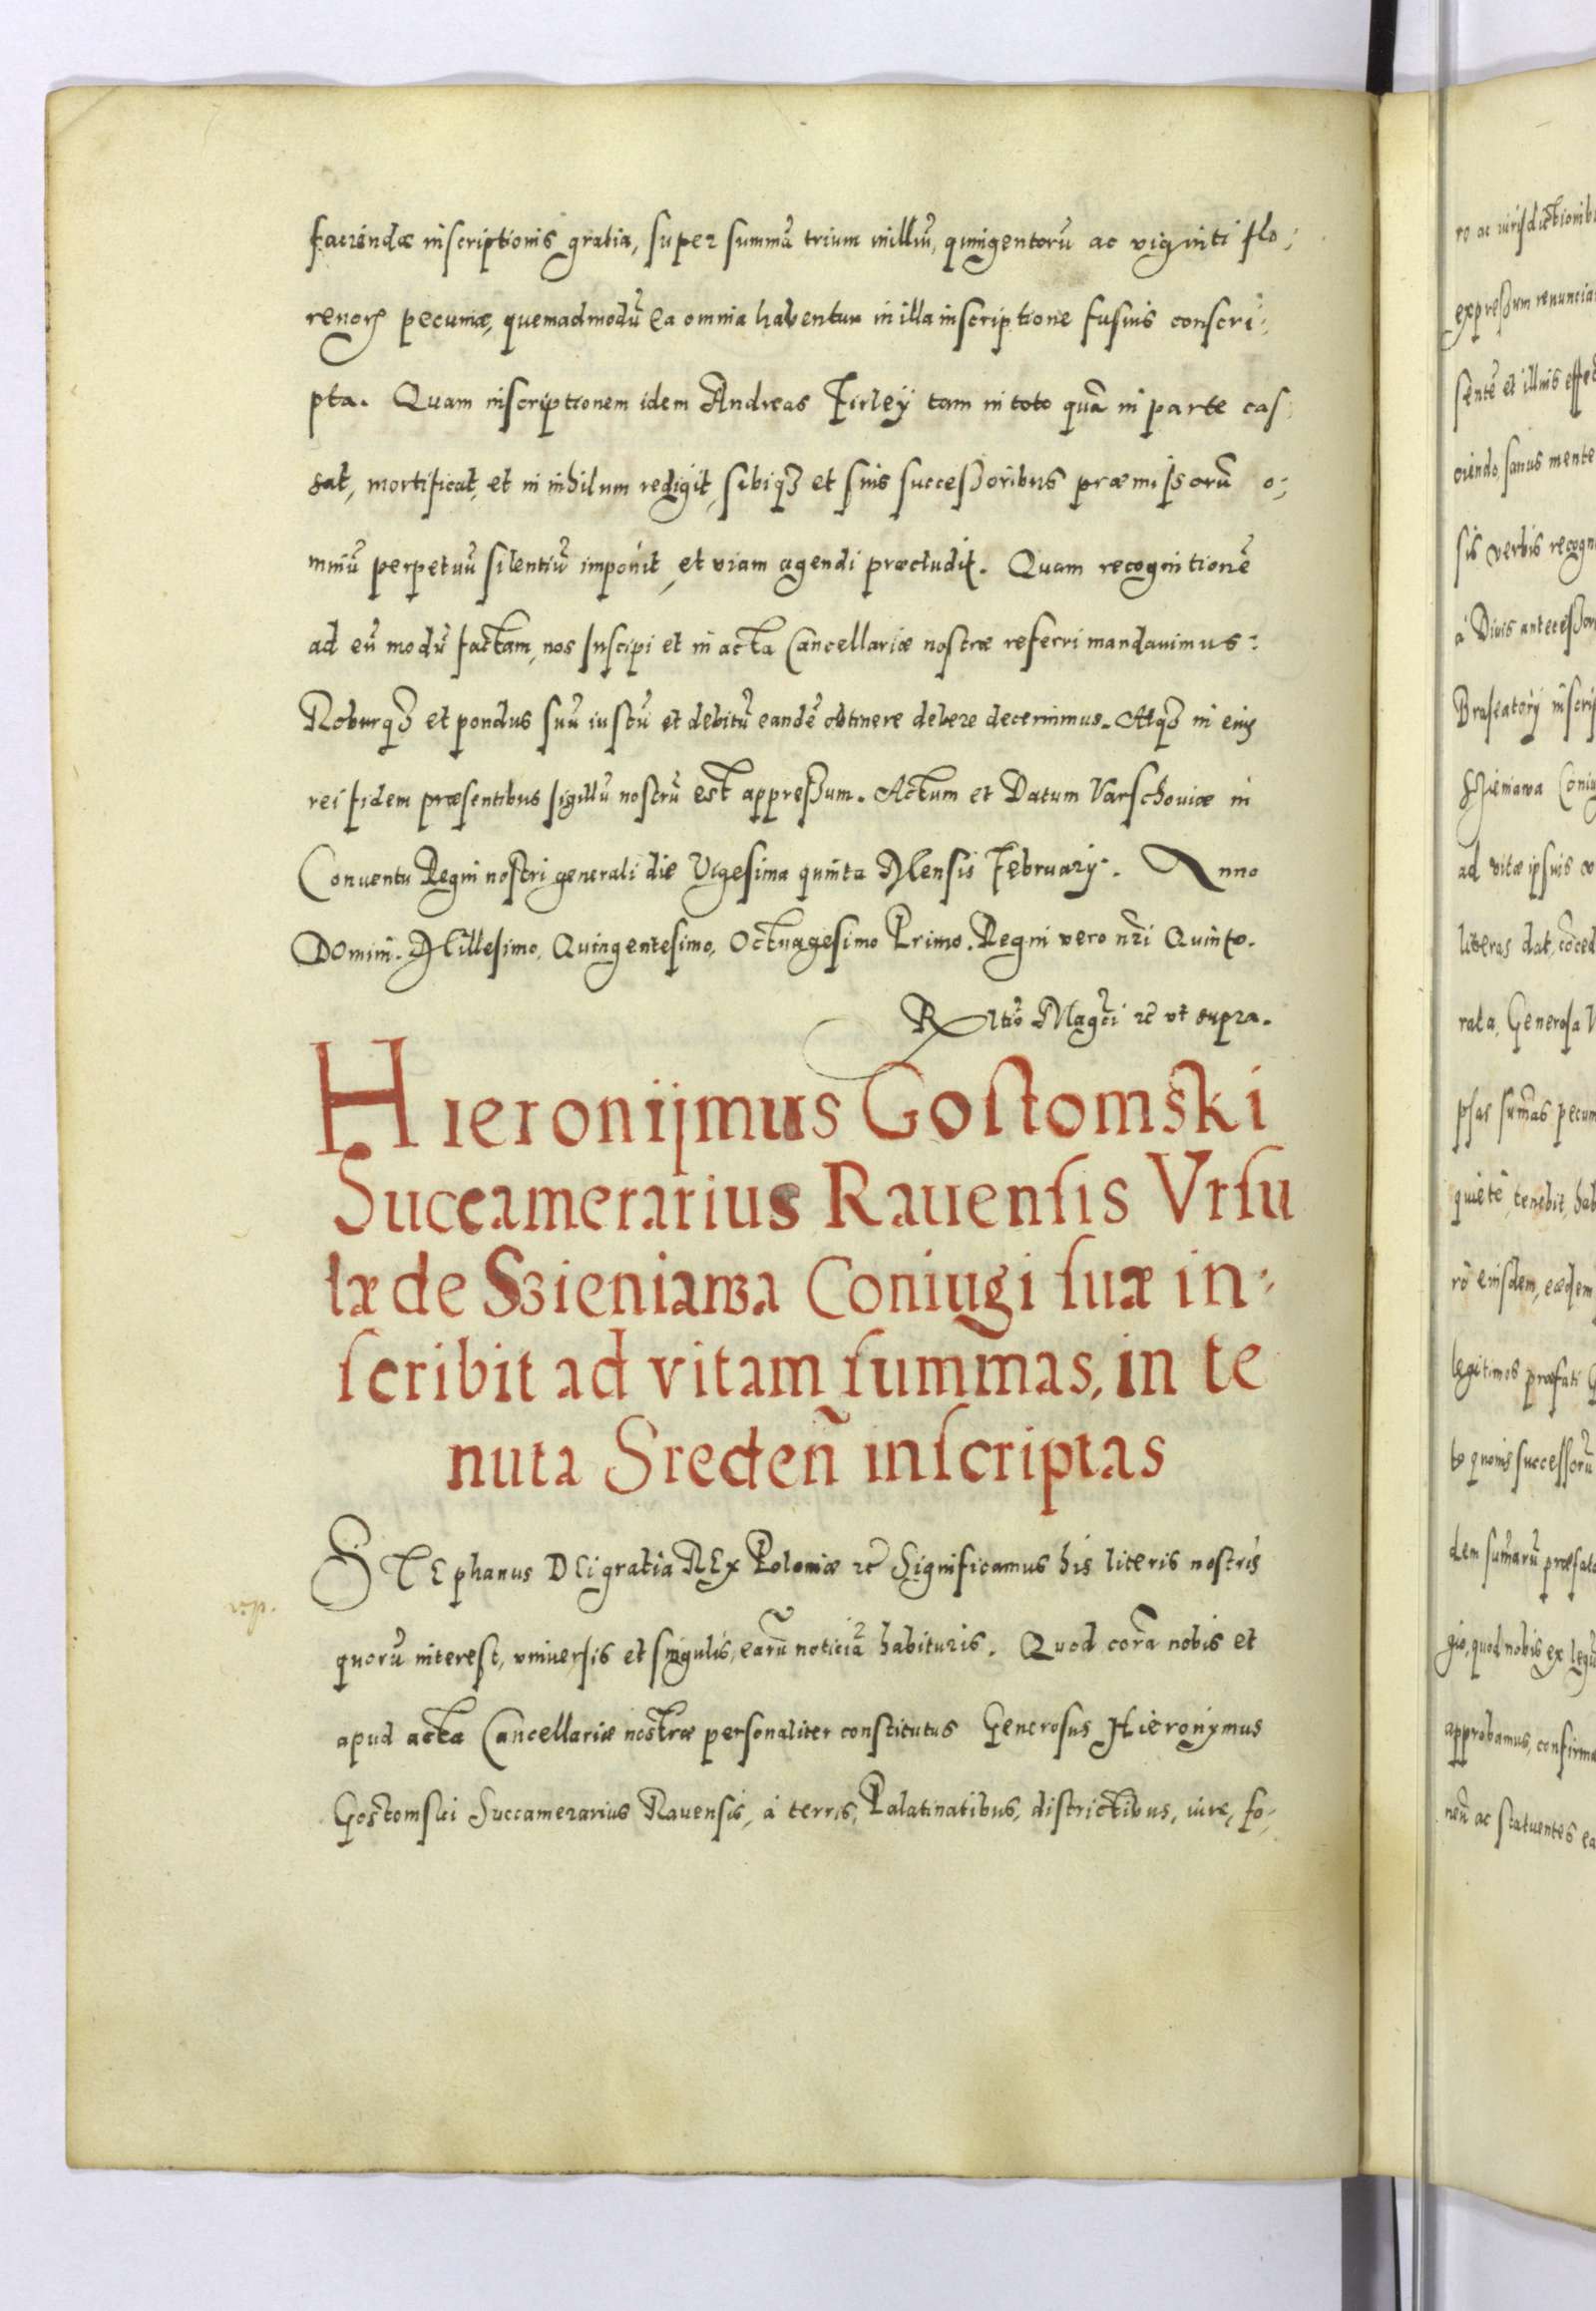 faciendæ inscriptionis gratia, super summã trium milliũ, quingentorũ ac viginti flo:
renorꝝ pecuniæ, quemadmodũ ea omnia habentur in illa inscriptione fusius conscri:
pta. Quam inscriptionem idem Andreas Firleÿ tam in toto quã in parte cas:
sat, mortificat, et in nihilum redigit, sibiqꝫ et suis successoribus præmissorũ o:
mniũ perpetuũ silentiũ imponit, et viam agendi præcludit. Quam recognitionẽ
ad eũ modũ factam, nos suscipi et in acta Cancellariæ nostræ referri mandauimus:
Roburqꝫ et pondus suũ iustũ et debitũ eandẽ obtinere debere decernimus. Atqꝫ in eius
rei fidem præsentibus sigillũ nostrũ est appressum. Actum et Datum Varschouiæ in
Conuentu Regni nostri generali die Vigesima quinta Mensis Februarÿ. Anno
Domini. Millesimo, Quingentesimo, Octuagesimo Primo. Regni vero nr̃i Quinto.
Rltiõ Mag͂ci ꝛc̃ vt supra.
Hieronijmus Gostomski
Succamerarius Rauensis Vrsu
læ de Szieniawa Coniugi suæ in:
scribit ad vitam summas, in te
nuta Sreden̄ inscriptas
STEphanus DEi gratia REx Poloniæ ꝛc̃ Significamus his literis nostris
quorũ interest, vniuersis et singulis, earũ noticiã habituris. Quod corã nobis et
apud acta Cancellariæ nostræ personaliter constitutus Generosus Hieronÿmus
Gostomski Succamerarius Rauensis, à terris, Palatinatibus, districtibus, iure, fo:
ro ac iurisdictionib
expressum renuncia
sentẽ et illius effec
ciendo, sanus mente
sis verbis recogn
à Diuis antecessor
inscrip
Szieniawa Coniug
ad vitæ ipsius
literas dat, cõced
rata, Generosa V
summas pecun
quietè, tenebit, hab
rõ eiusdem, eædem
legitimos præfati G
successorũ
dem sum̃arũ præfat
gio, quod nobis ex
approbamus, confirma
ac statuentes ea